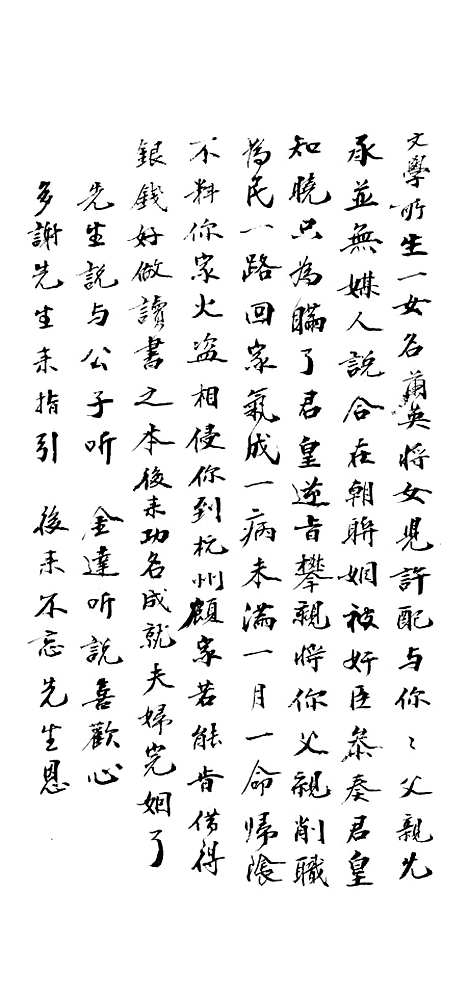 文學所生一女名蘭英將女兒許配与你〻父親允
承並無媒人說合在朝聯姻被奸臣叅奏君皇
知曉只為瞞了君皇逆旨攀親將你父親削職
為民一路回家氣成一病未滿一月一命歸陰
不料你家火盜相侵你到杭州顧家若能肯借得
銀錢好做讀書之本後來功名成就夫婦完姻了
先生説与公子听　金達听説喜歡心
多謝先生来指引　後来不忘先生恩